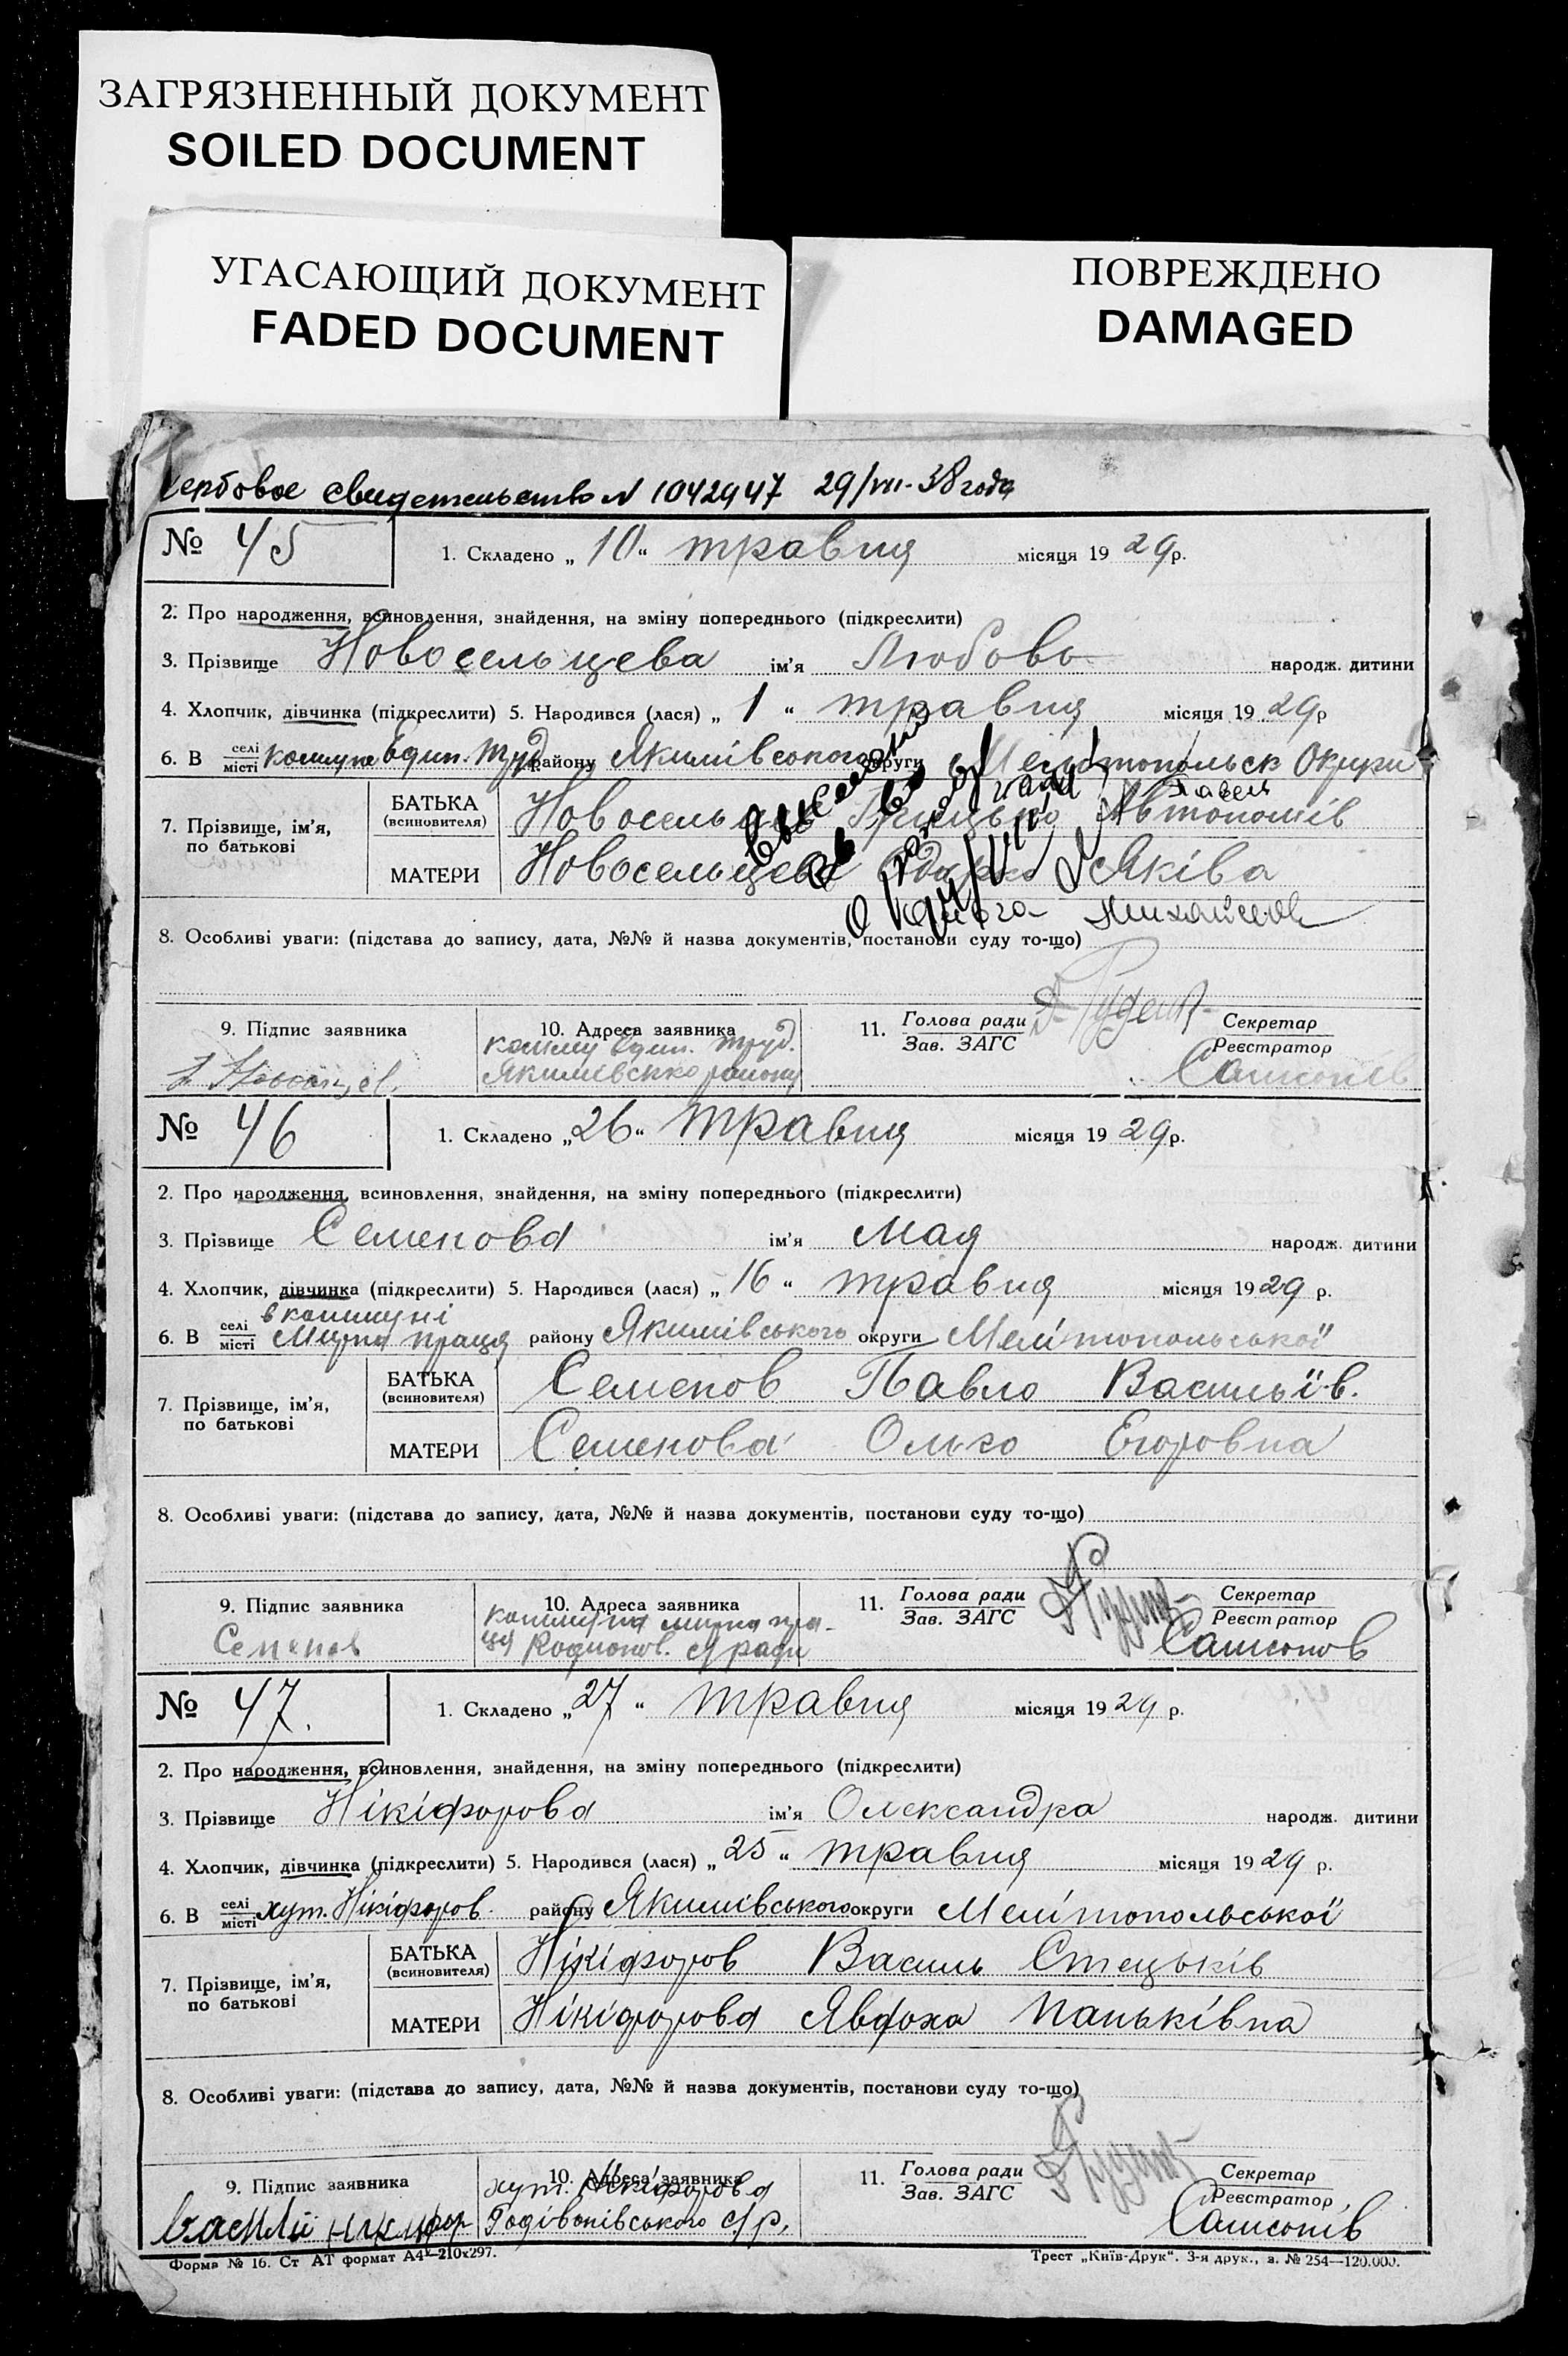 ЗАГРЯЗНЕННЫЙ ДОКУМЕНТ
SOILED DOCUMENT
УГАСАЮЩИЙ ДОКУМЕНТ
FADED DOCUMENT
ПОВРЕЖДЕНО
DAMAGED
Гербовое свидетельство N 1042947 29/VII-38 года
№ 45 1. Складено „10“ травня місяця 1929р.
2. Про народження, всиновлення, знайдення, на зміну попереднього (підкреслити)
3. Прізвище Новосельцева ім'я Любовь народж. дитини
4. Хлопчик, дівчинка (підкреслити) 5. Народився (лася) „1“ травня місяця 1929р
6. В селі місті комуне Един. Труд району Якимівського округи Мелітопольск Округи
Павель
7. Прізвище, ім'я, по батькові
БАТЬКА (всиновителя) Новосельцев Грицько Автономів
МАТЕРИ Новосельцева Одарка Яківа
8. Особливі уваги: (підстава до запису, дата, №№ й назва документів, постанови суду то-що)
9. Підпис заявника
10. Адреса заявника
комму Един. труд.
Якимівсько району
11. Голова ради Зав. ЗАГС
Секретар Реєстратор
Самсонів
№ 46 1. Складено „26“ травня місяця 1929р.
2. Про народження, всиновлення, знайдення, на зміну попереднього (підкреслити)
3. Прізвище Семенова ім'я Мая народж. дитини
4. Хлопчик, дівчинка (підкреслити) 5. Народився (лася) „16“ травня місяця 1929 р.
в коммуні
6. В селі місті Мирна праця району Якимівського округи Мелітопольської
7. Прізвище, ім'я, по батькові
БАТЬКА (всиновителя) Семенов Павло Васильїв.
МАТЕРИ Семенова Ольго Егоровна
8. Особливі уваги: (підстава до запису, дата, №№ й назва документів, постанови суду то-що)
9. Підпис заявника
Семенов
10. Адреса заявника
коммуна мирна пра-
ця Родионов. с/ ради
11. Голова ради Зав. ЗАГС
Секретар Реєстратор
Самсонов
№ 47. 1. Складено „27“ травня місяця 1929 р.
2. Про народження, всиновлення, знайдення, на зміну попереднього (підкреслити)
3. Прізвище Нікіфорова ім'я Олександра народж. дитини
4. Хлопчик, дівчинка (підкреслити) 5. Народився (лася) „25“ травня місяця 1929 р.
6. В селі місті хут. Нікіфоров. району Якимівського округи Мелітопольської
7. Прізвище, ім'я, по батькові
БАТЬКА (всиновителя) Нікіфоров Василь Стецьків
МАТЕРИ Нікіфорова Явдоха Паньківна
8. Особливі уваги: (підстава до запису, дата, №№ й назва документів, постанови суду то-що)
9. Підпис заявника
Василий Никифор
10. Адреса заявника
хут. Нікіфорова
Родівонівського с/р.
11. Голова ради Зав. ЗАГС
Секретар Реєстратор
Самсонів
Форма № 16. Ст АТ формат А4—210х297.
Трест „Київ-Друк“. 3-я друк., з. № 254—120.000.